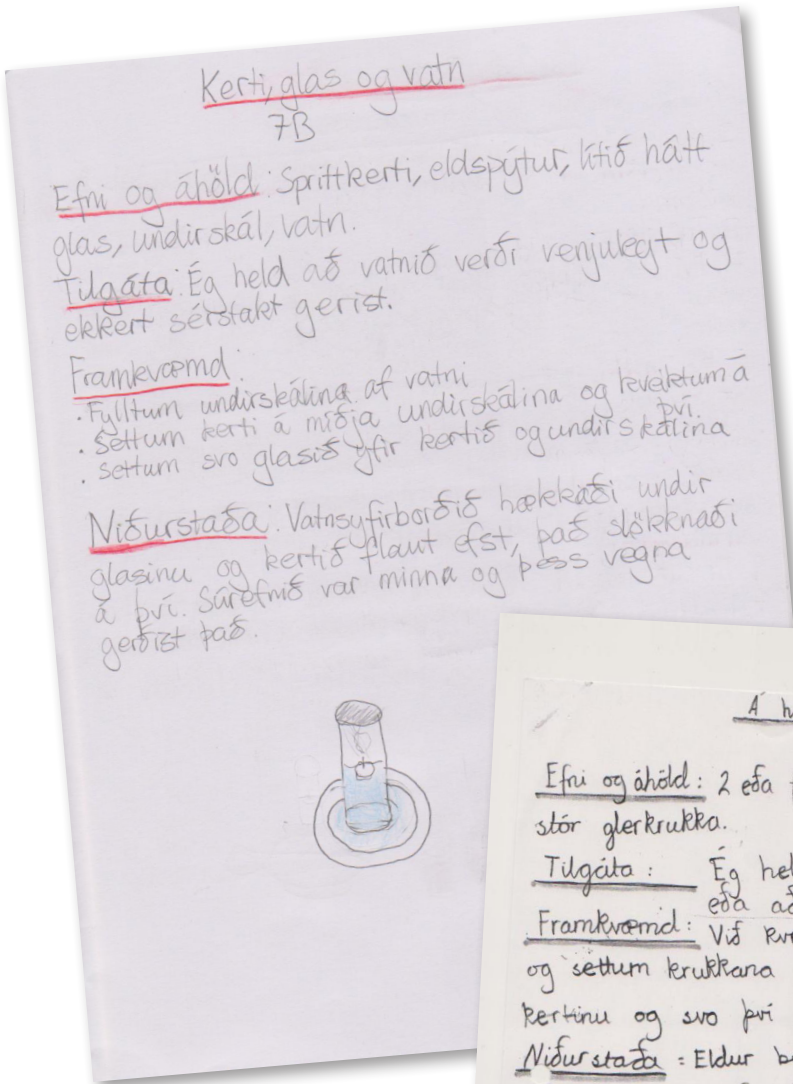 Kerti, glas og vatn
7B
Efni og áhöld: Sprittkerti, eldspýtur, lítið hátt
glas, undirskál, vatn.
Tilgáta: Ég held að vatnið verði venjulegt og
ekkert sérstakt gerist.
Framkvæmd:
· Fylltum undirskálina af vatni
· Settum kerti á miðja undirskálina og kveiktum á
því.
· settum svo glasið yfir kertið og undirskálina
Niðurstaða: Vatnsyfirborðið hækkaði undir
glasinu og kertið flaut efst, það slökknaði
á því. Súrefnið var minna og þess vegna
gerðist það.
Á h
Efni og áhöld: 2 eða
stór glerkrukka.
Tilgáta: Ég hel
eða að
Framkvæmd: Við kv
og settum krukkana
kertinu og svo því
Niðurstaða: Eldur b